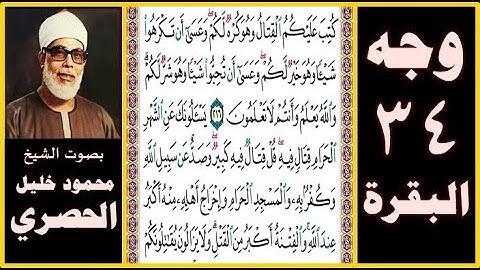 وجه
٣٤
البقرة
كُتِبَ عَلَيْكُمُ ٱلْقِتَالُ وَهُوَ كُرْهٌ لَّكُمْ ۖ وَعَسَىٰٓ أَن تَكْرَهُوا۟
شَيْـًٔا وَهُوَ خَيْرٌ لَّكُمْ ۖ وَعَسَىٰٓ أَن تُحِبُّوا۟ شَيْـًٔا وَهُوَ شَرٌّ لَّكُمْ ۗ
وَٱللَّهُ يَعْلَمُ وَأَنتُمْ لَا تَعْلَمُونَ ٢١٦ يَسْـَٔلُونَكَ عَنِ ٱلشَّهْرِ
ٱلْحَرَامِ قِتَالٍ فِيهِ ۖ قُلْ قِتَالٌ فِيهِ كَبِيرٌ ۖ وَصَدٌّ عَن سَبِيلِ ٱللَّهِ
وَكُفْرٌۢ بِهِۦ وَٱلْمَسْجِدِ ٱلْحَرَامِ وَإِخْرَاجُ أَهْلِهِۦ مِنْهُ أَكْبَرُ
عِندَ ٱللَّهِ ۚ وَٱلْفِتْنَةُ أَكْبَرُ مِنَ ٱلْقَتْلِ ۗ وَلَا يَزَالُونَ يُقَـٰتِلُونَكُمْ
بصوت الشيخ
محمود خليل
الحصري